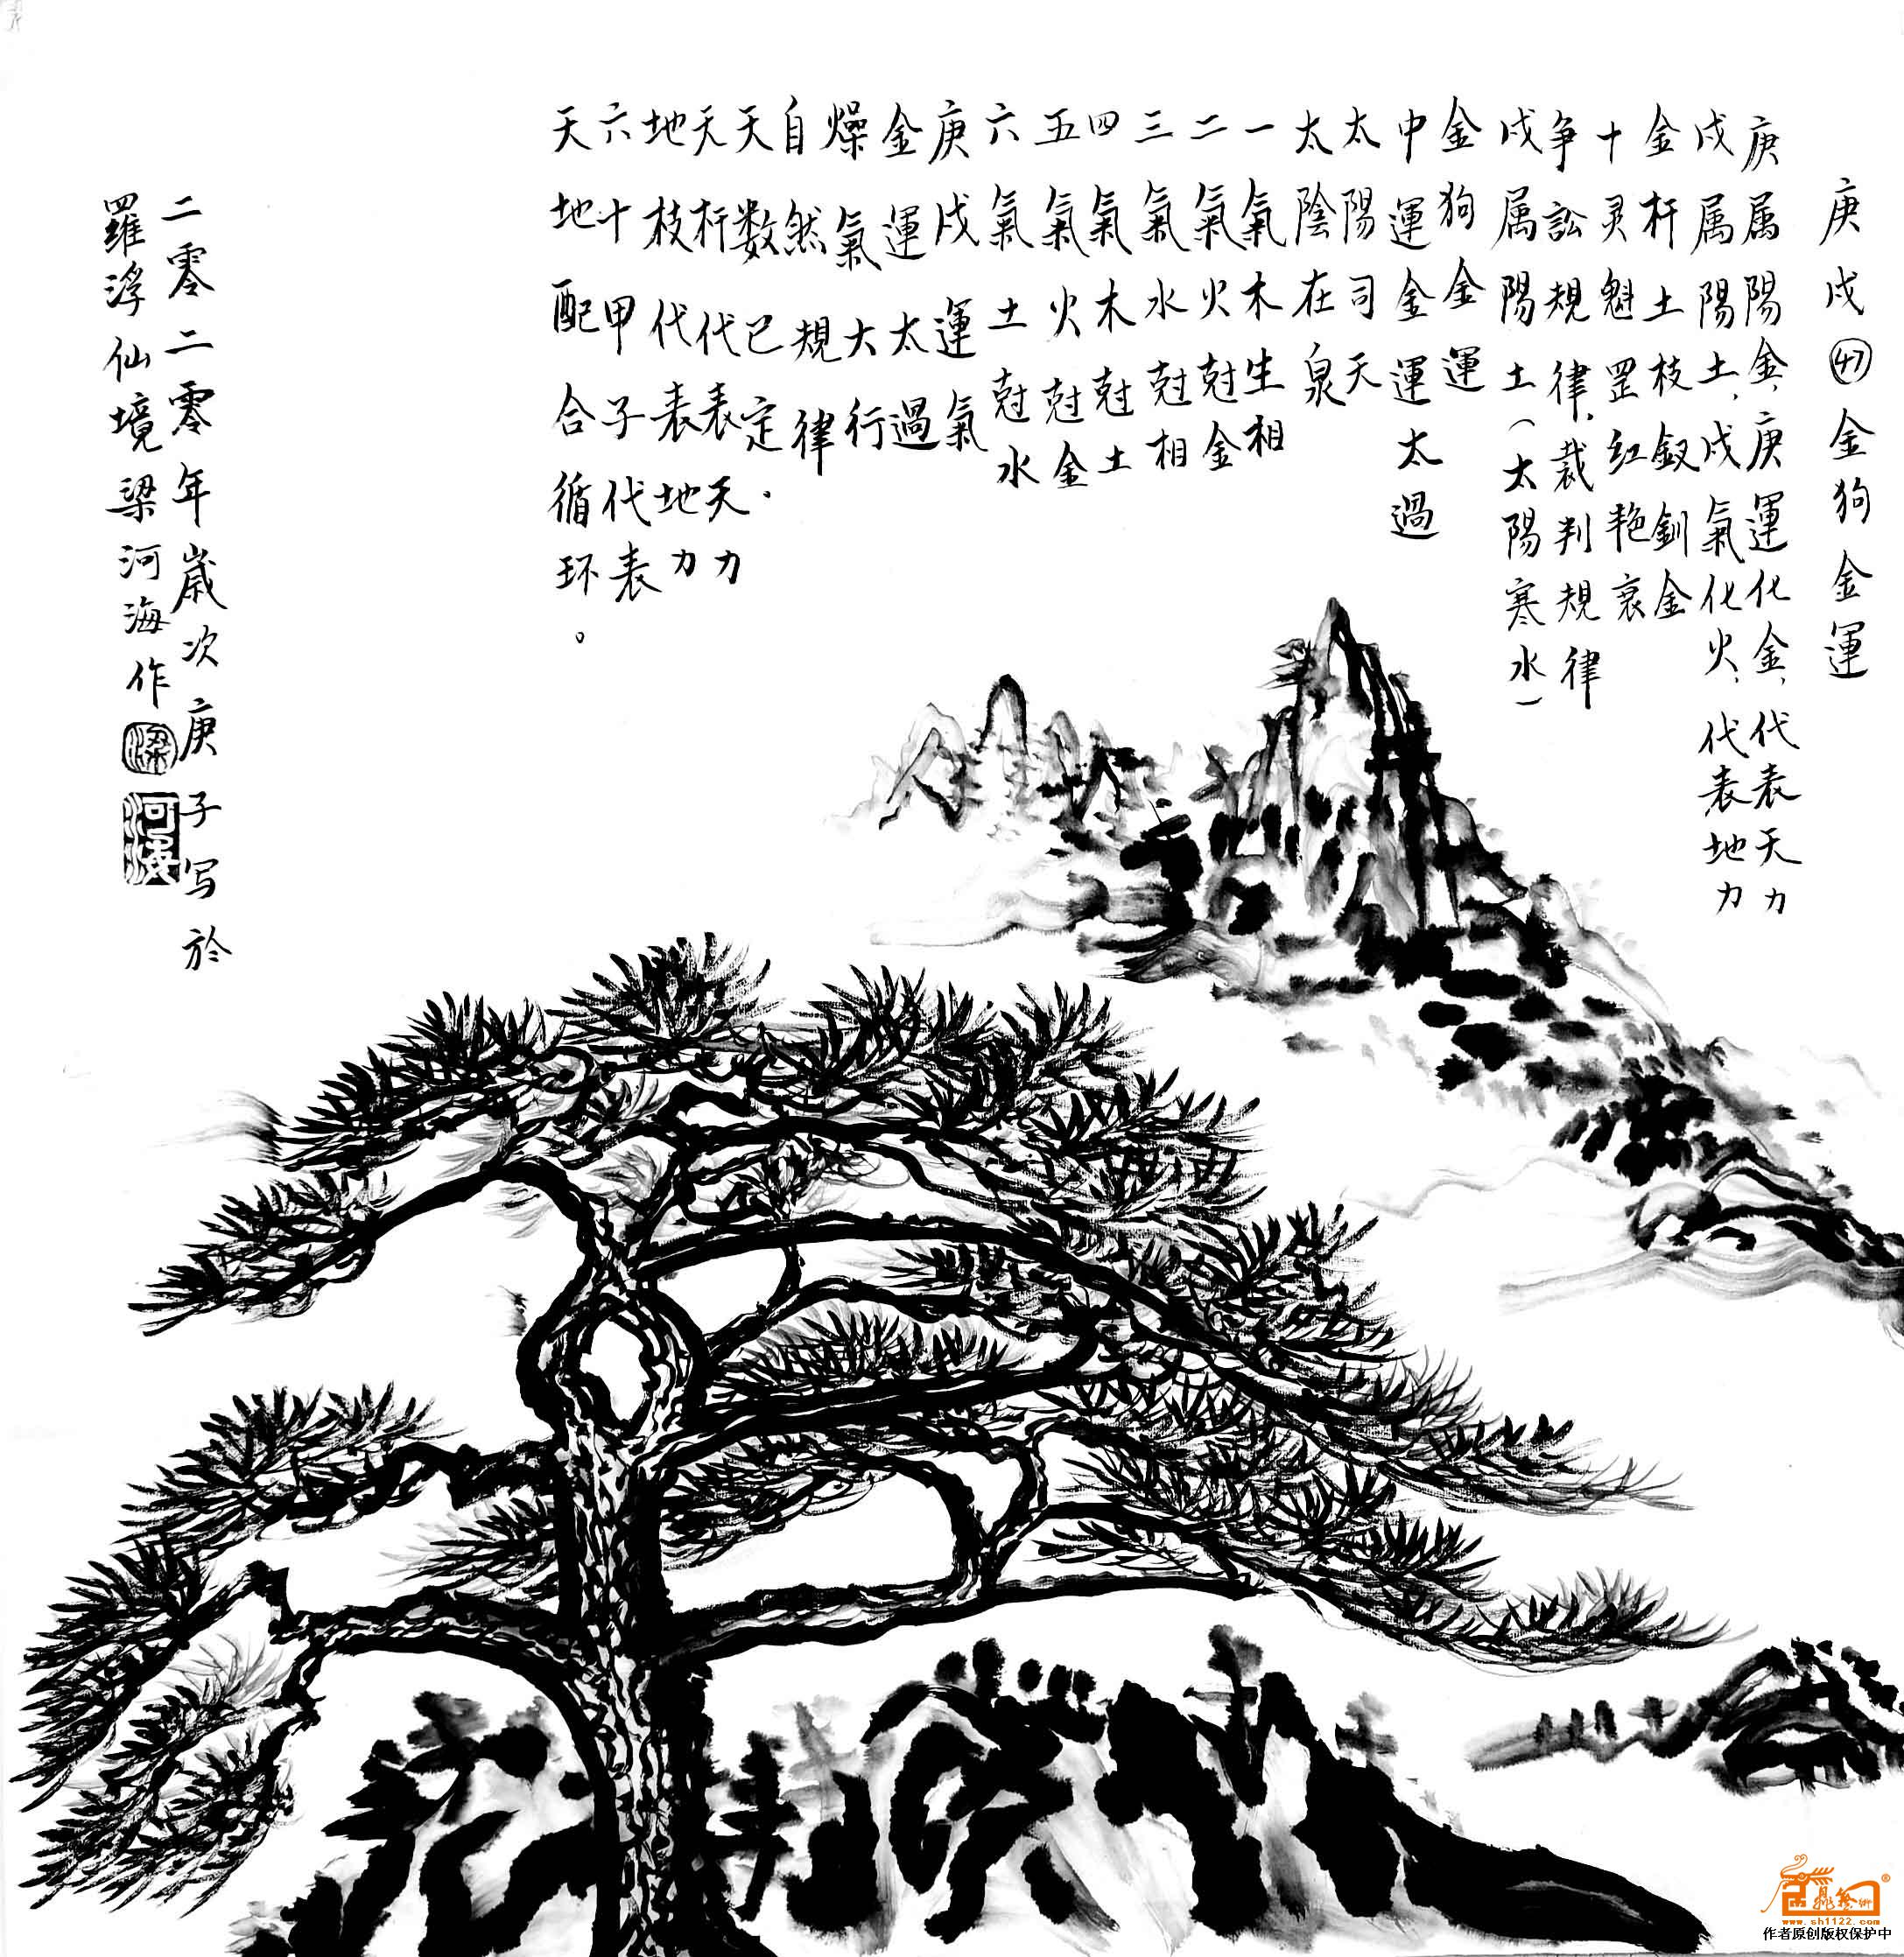 庚戌㊼金狗金運
庚属陽金，庚運化金，代表天力
戌属陽土，戌氣化火，代表地力
金杆土枝釵釧金
十灵魁罡红艳衰
争訟規律，裁判規律
戌属陽土（太陽寒水）
金狗金運
中運金運太過
太陽司天
太陰在泉
一氣木生相
二氣火尅金
三氣水尅相
四氣木尅土
五氣火尅金
六氣土尅水
庚戌運氣
金運太過
燥氣大行
自然規律
天数已定．
天杆代表天力
地枝代表地力
六十甲子代表
天地配合循环。
二零二零年歲次庚子写於
羅浮仙境梁河海作
梁
河海
www.sh1122.com
作者原创版权保护中